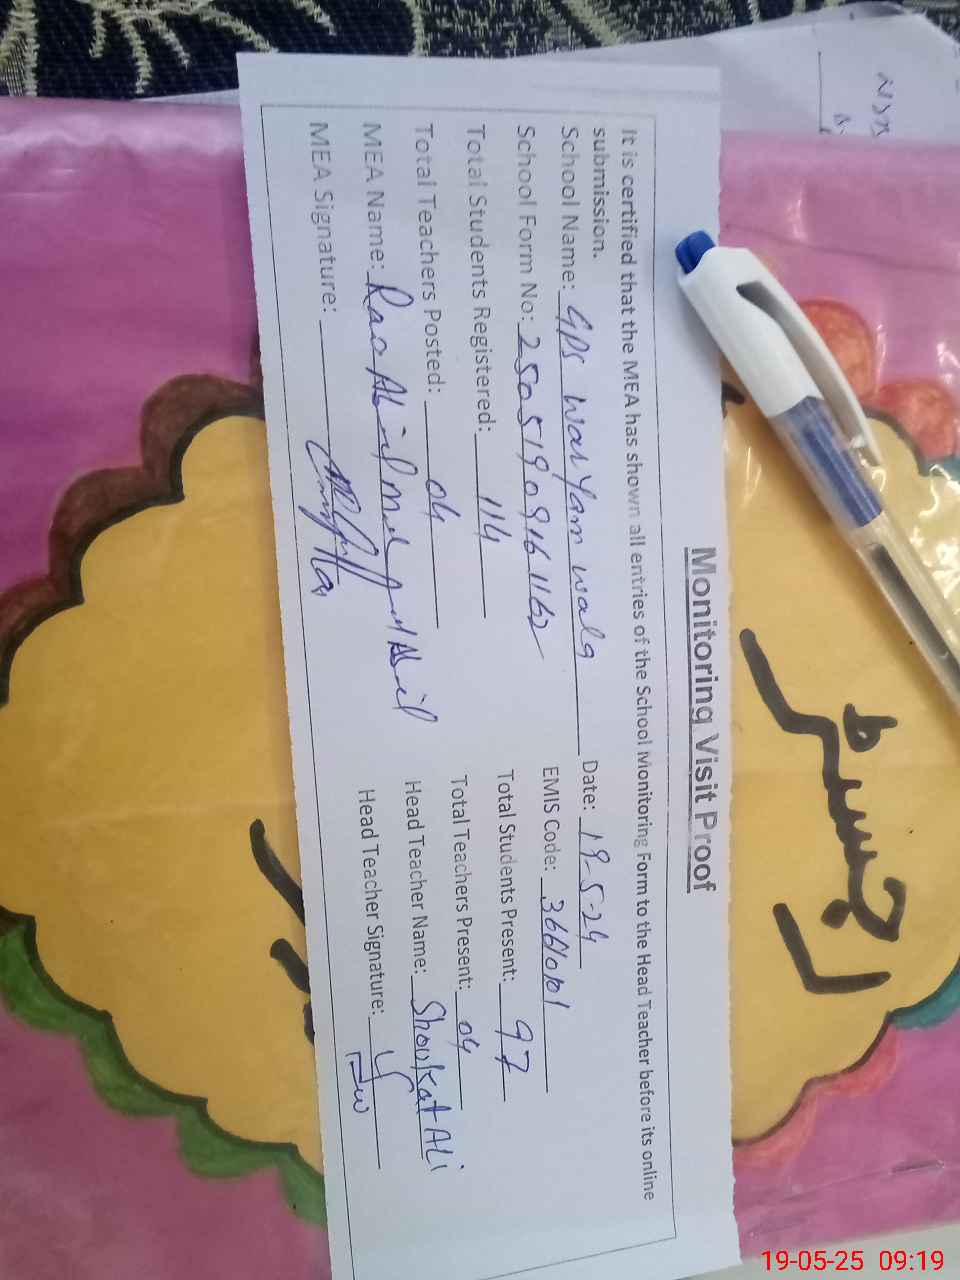 Monitoring Visit Proof
It is certified that the MEA has shown all entries of the School Monitoring Form to the Head Teacher before its online
submission.
School Name: GPS waryam wala Date: 19-5-24
School Form No: EMIS Code:
Total Students Registered: 114 Total Students Present: 97
Total Teachers Posted: 04 Total Teachers Present: 04
MEA Name: Rao Head Teacher Name: Shoukat ALi
MEA Signature: Head Teacher Signature:
رجسٹر
19-05-25 09:19